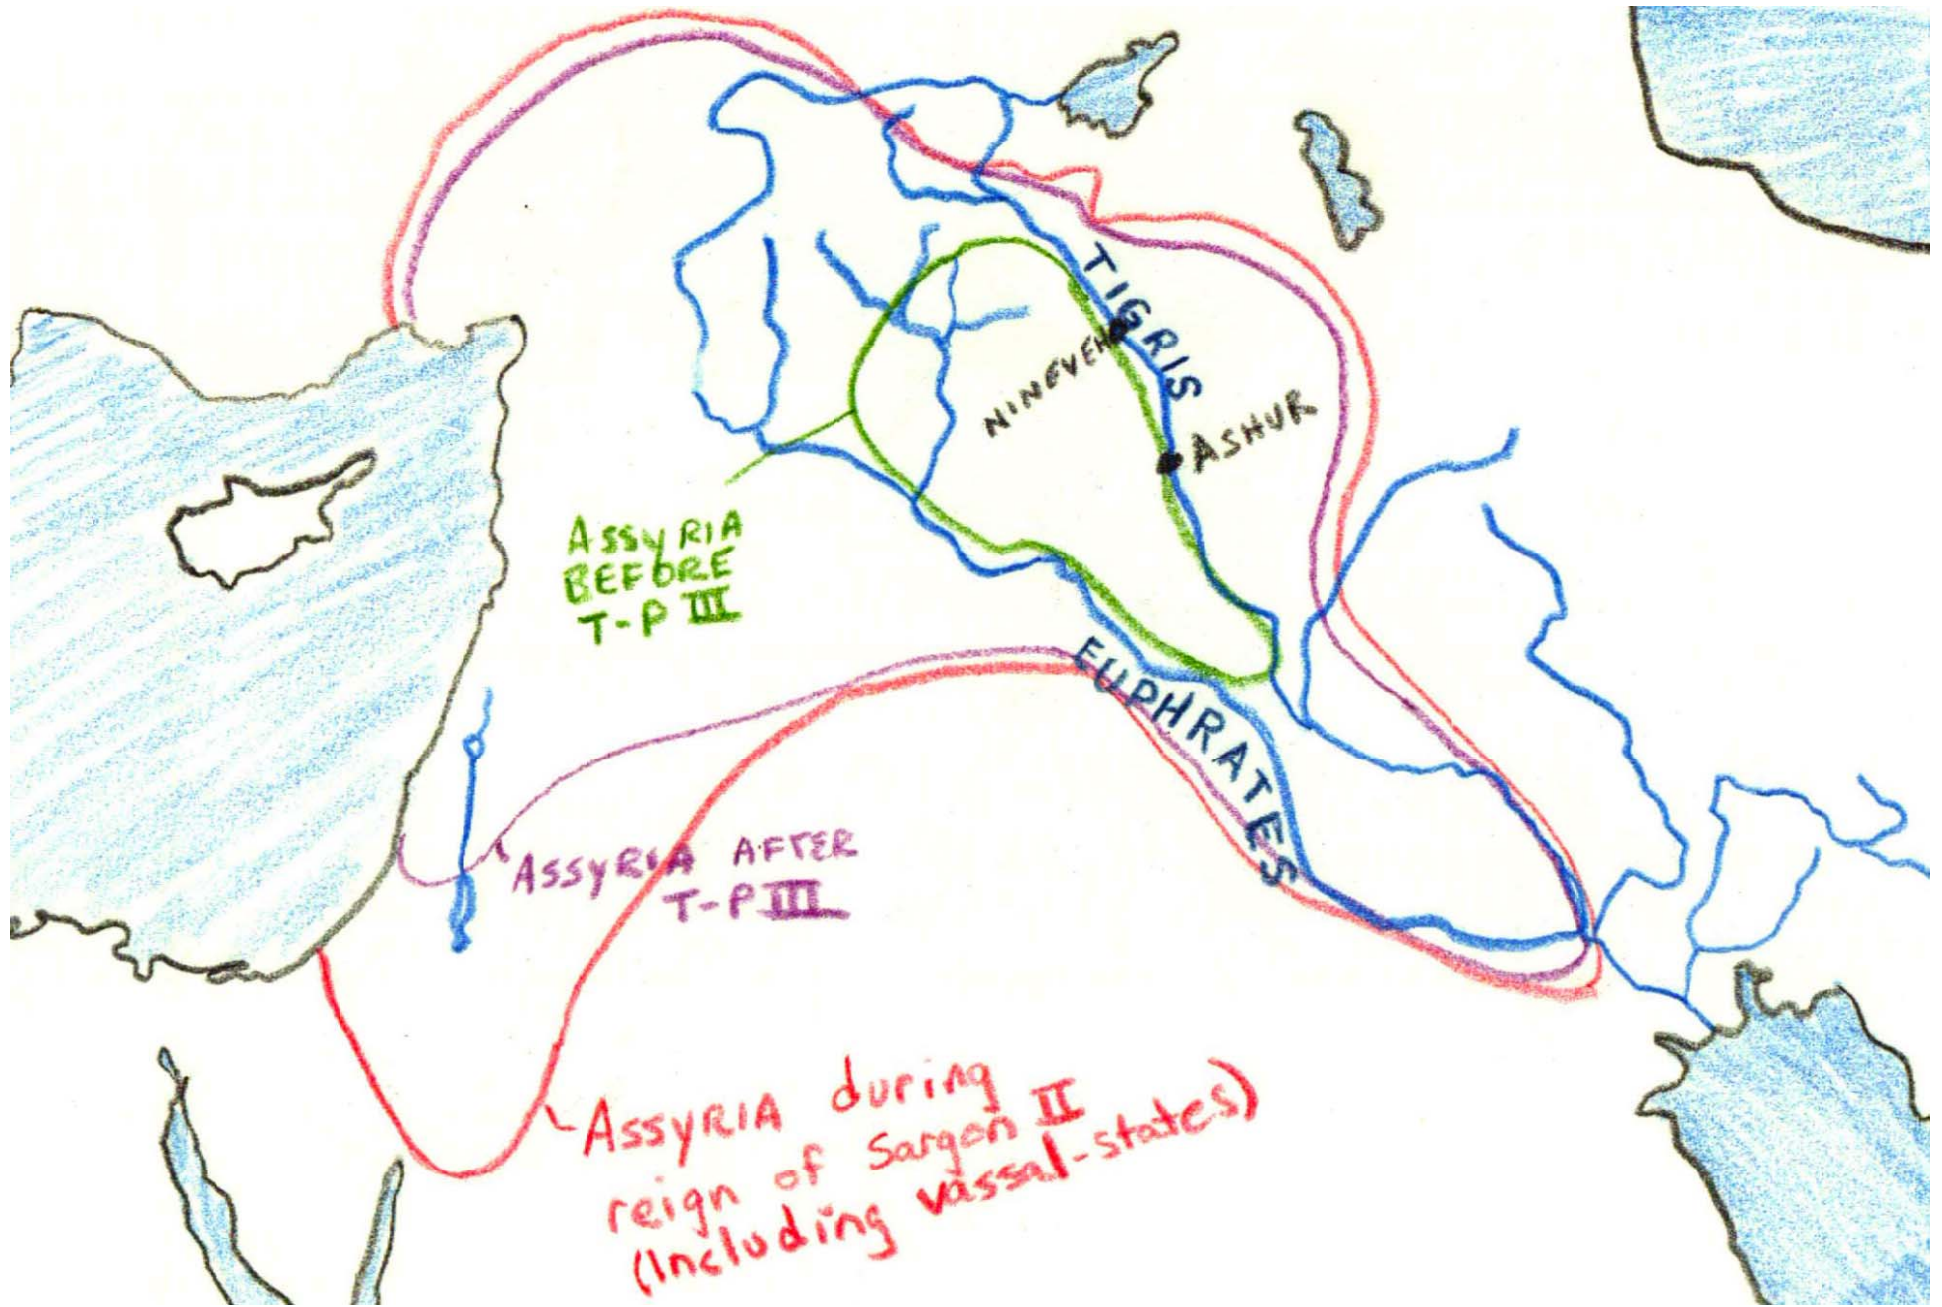 TIGRIS
NINEVEH
ASHUR
ASSYRIA
BEFORE
T-P III
EUPHRATES
ASSYRIA AFTER
T-P III
ASSYRIA during
reign of Sargon II
(Including vassal-states)